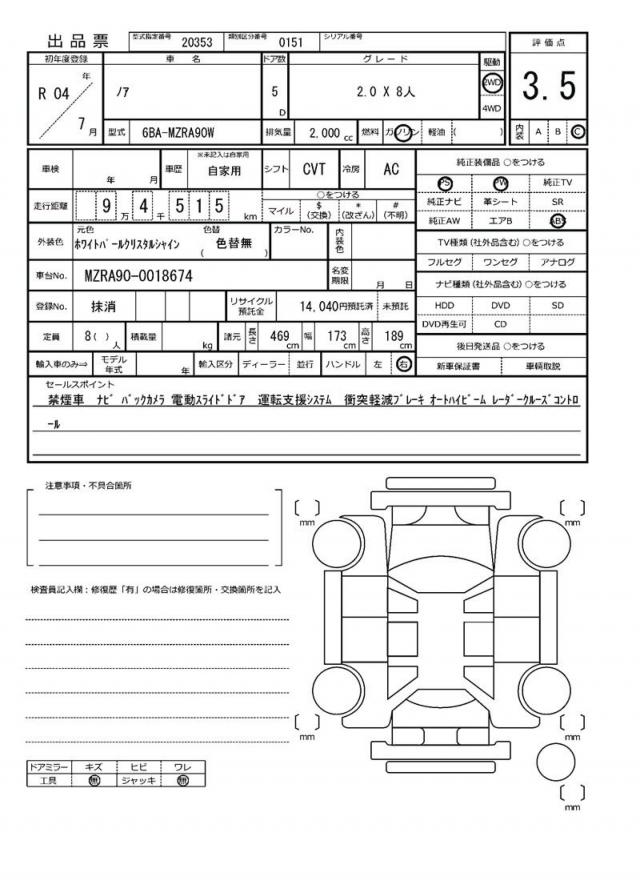 出品票 型式指定番号 20353 類別区分番号 0151 シリアル番号
初年度登録 車名 ドア数 グレード 駆動 評価点
R 04 年 7 月 ﾉｱ 5 D 2.0 X 8人 2WD 4WD 3.5
型式 6BA-MZRA90W 排気量 2,000 cc 燃料 ガソリン 軽油 ( ) 内装 A B C
車検 年 月 車歴 ※未記入は自家用 自家用 シフト CVT 冷房 AC 純正装備品 ○をつける
PS PW 純正TV
走行距離 9 万 4 千 5 1 5 km ○をつける
マイル $ (交換) * (改ざん) # (不明)
純正ナビ 革シート SR
純正AW エアB ABS
外装色 元色 ﾎﾜｲﾄﾊﾟｰﾙｸﾘｽﾀﾙｼｬｲﾝ 色替 ( 色替無 ) カラーNo. 内装色
TV種類 (社外品含む) ○をつける
フルセグ ワンセグ アナログ
車台No. MZRA90-0018674 名変期限 月 日
ナビ種類 (社外品含む) ○をつける
登録No. 抹消 リサイクル預託金 14,040円預託済 未預託
HDD DVD SD
DVD再生可 CD
定員 8 ( ) 人 積載量 kg 諸元 長さ 469 cm 幅 173 cm 高さ 189 cm
後日発送品 ○をつける
輸入車のみ⇒ モデル年式 年 輸入区分 ディーラー 並行 ハンドル 左 右 新車保証書 車輌取説
セールスポイント
禁煙車 ﾅﾋﾞ ﾊﾞｯｸカメラ 電動ｽﾗｲﾄﾞﾄﾞｱ 運転支援ｼｽﾃﾑ 衝突軽減ﾌﾞﾚｰｷ ｵｰﾄﾊｲﾋﾞｰﾑ ﾚｰﾀﾞｰｸﾙｰｽﾞｺﾝﾄﾛ
ｰﾙ
注意事項・不具合箇所
mm mm
検査員記入欄：修復歴「有」の場合は修復箇所・交換箇所を記入
mm mm
ドアミラー キズ ヒビ ワレ
工具 無 ジャッキ 無
mm